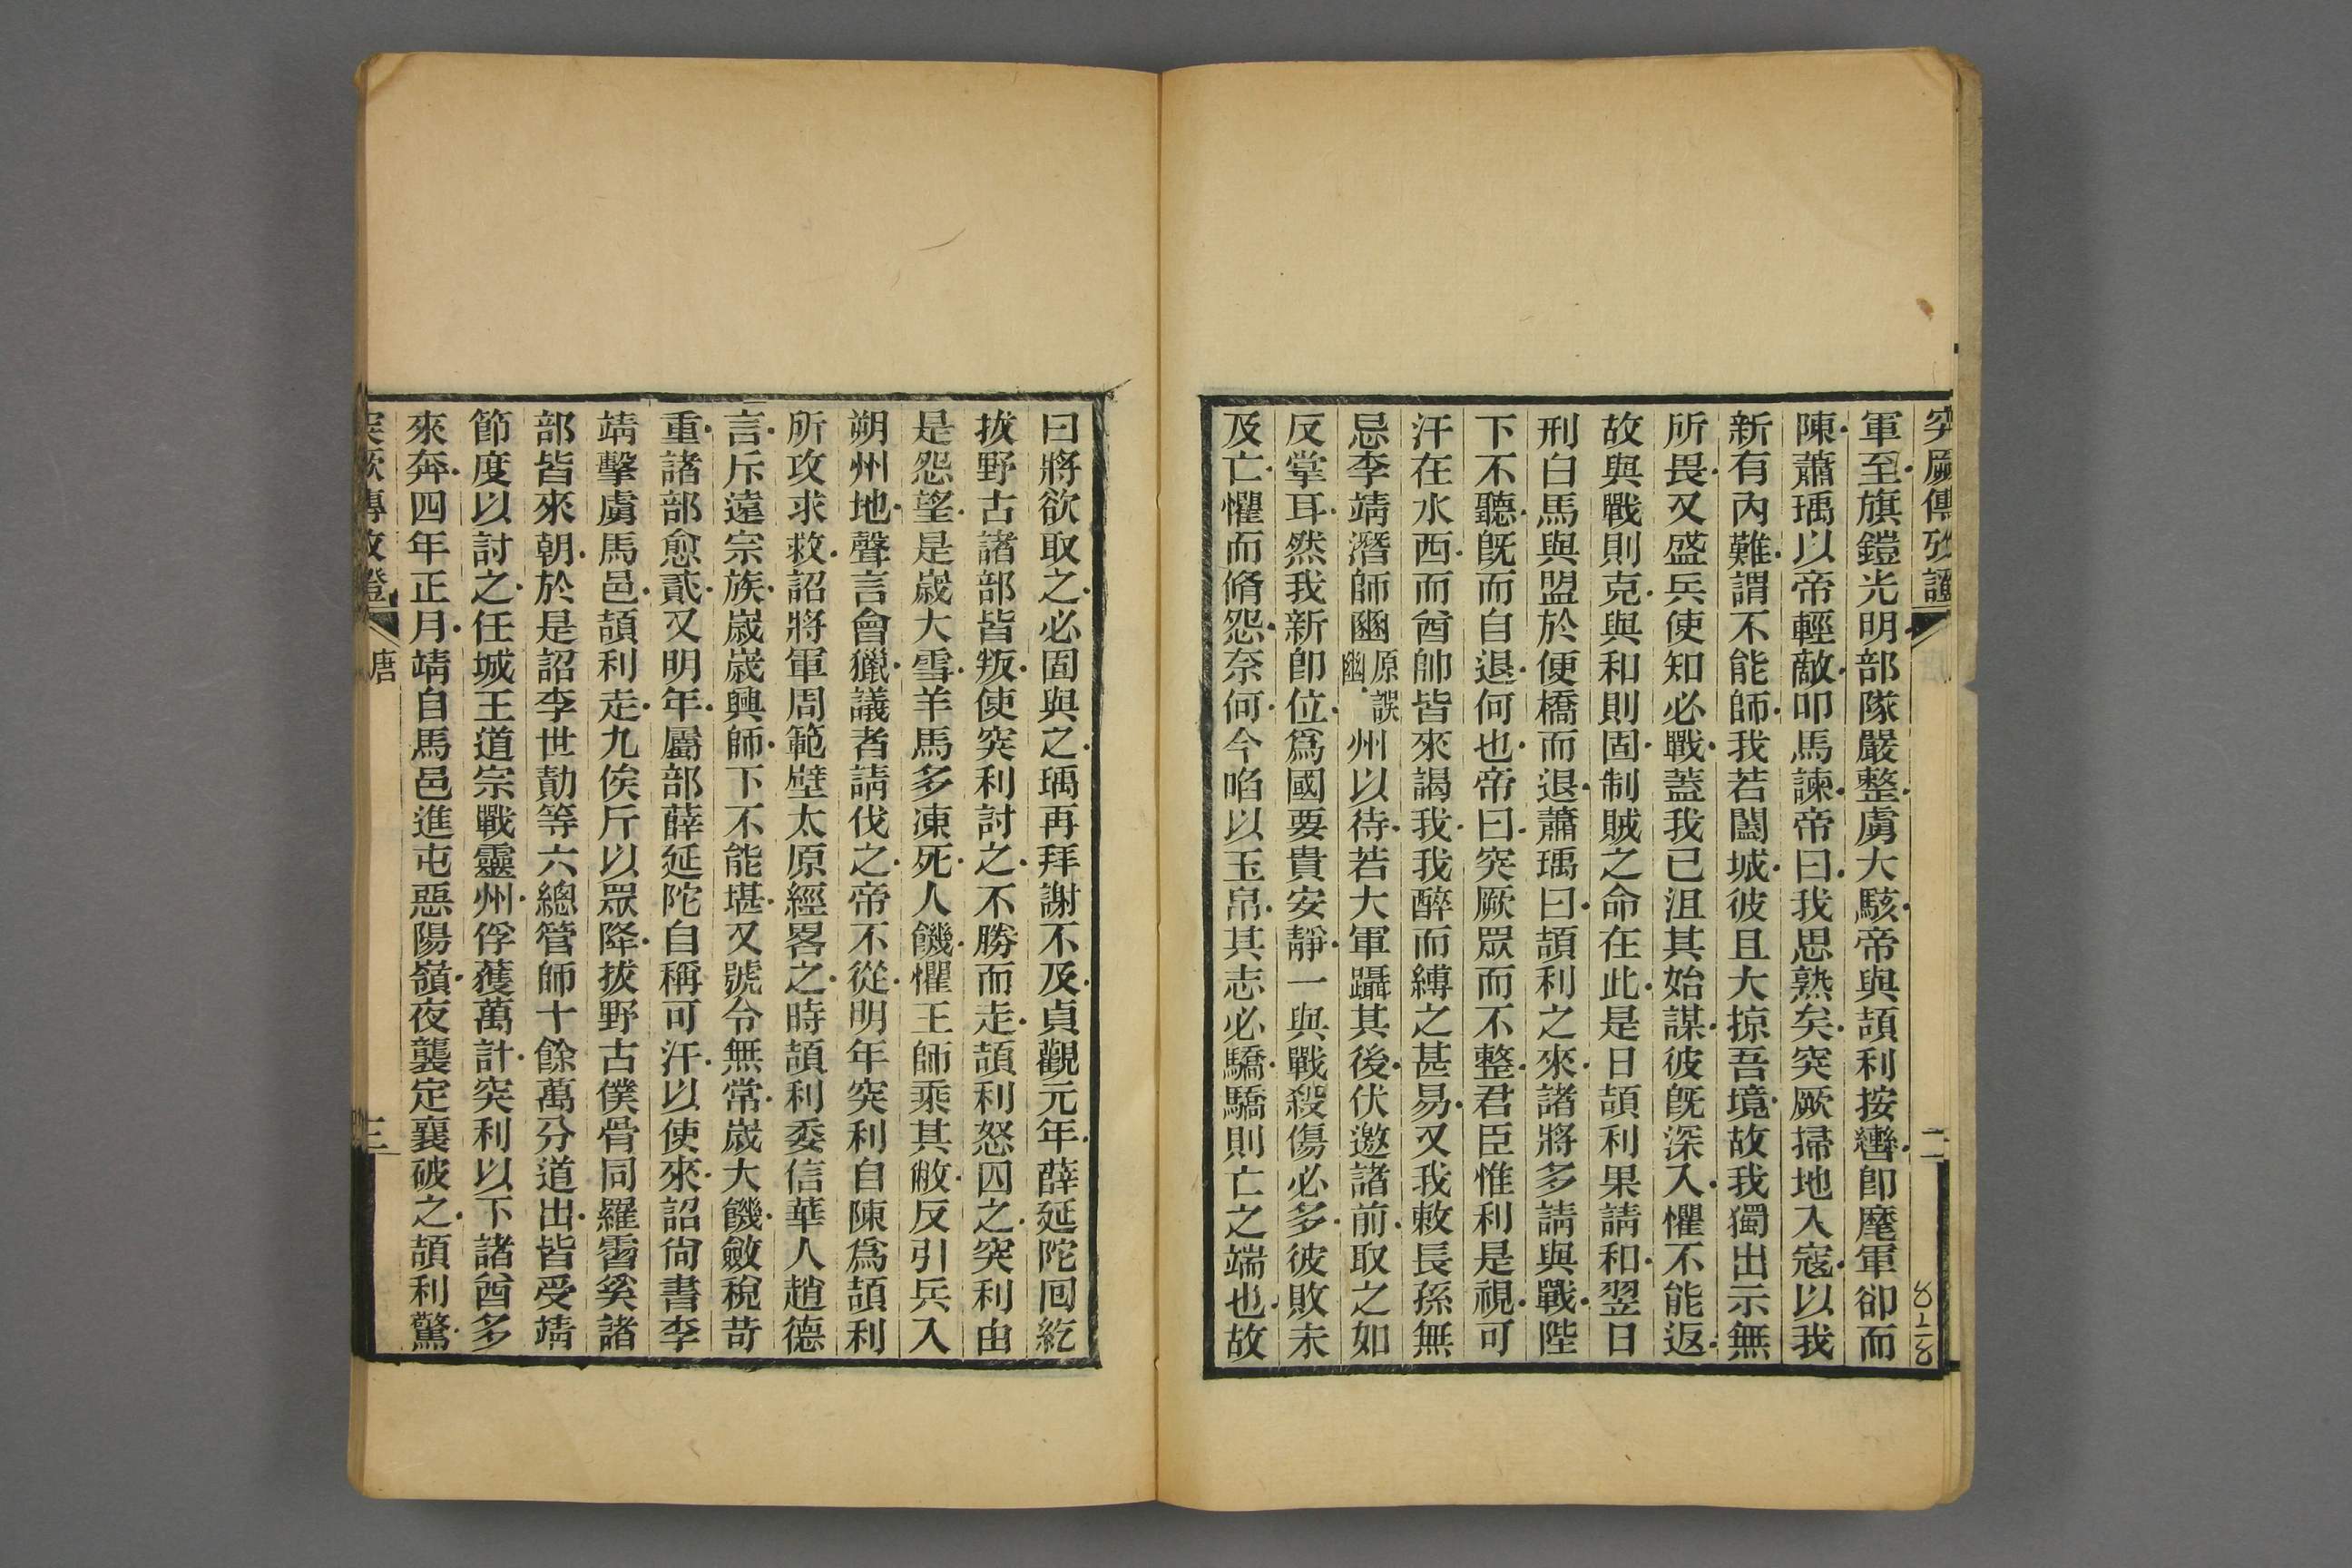 突厥傳攷證
二
軍至旗鎧光明部隊嚴整虜大駭帝與頡利按轡卽麾軍卻而
陳蕭瑀以帝輕敵叩馬諫帝曰我思熟矣突厥掃地入寇以我
新有內難謂不能師我若闔城彼且大掠吾境故我獨出示無
所畏又盛兵使知必戰蓋我已沮其始謀彼旣深入懼不能返
故與戰則克與和則固制賊之命在此是日頡利果請和翌日
刑白馬與盟於便橋而退蕭瑀曰頡利之來諸將多請與戰陛
下不聽旣而自退何也帝曰突厥眾而不整君臣惟利是視可
汗在水西而酋帥皆來謁我我醉而縛之甚易又我敕長孫無
忌李靖潛師豳原誤豳州以待若大軍躡其後伏邀諸前取之如
反掌耳然我新卽位爲國要貴安靜一與戰殺傷必多彼敗未
及亡懼而脩怨奈何今啗以玉帛其志必驕驕則亡之端也故
曰將欲取之必固與之瑀再拜謝不及貞觀元年薛延陀回紇
拔野古諸部皆叛使突利討之不勝而走頡利怒囚之突利由
是怨望是歲大雪羊馬多凍死人饑懼王師乘其敝反引兵入
朔州地聲言會獵議者請伐之帝不從明年突利自陳爲頡利
所攻求救詔將軍周範壁太原經畧之時頡利委信華人趙德
言斥遠宗族歲歲興師下不能堪又號令無常歲大饑斂稅苛
重諸部愈貳又明年屬部薛延陀自稱可汗以使來詔尙書李
靖擊虜馬邑頡利走九俟斤以眾降拔野古僕骨同羅霫奚諸
部皆來朝於是詔李世勣等六總管師十餘萬分道出皆受靖
節度以討之任城王道宗戰靈州俘獲萬計突利以下諸酋多
來奔四年正月靖自馬邑進屯惡陽嶺夜襲定襄破之頡利驚
突厥傳攷證
唐
三